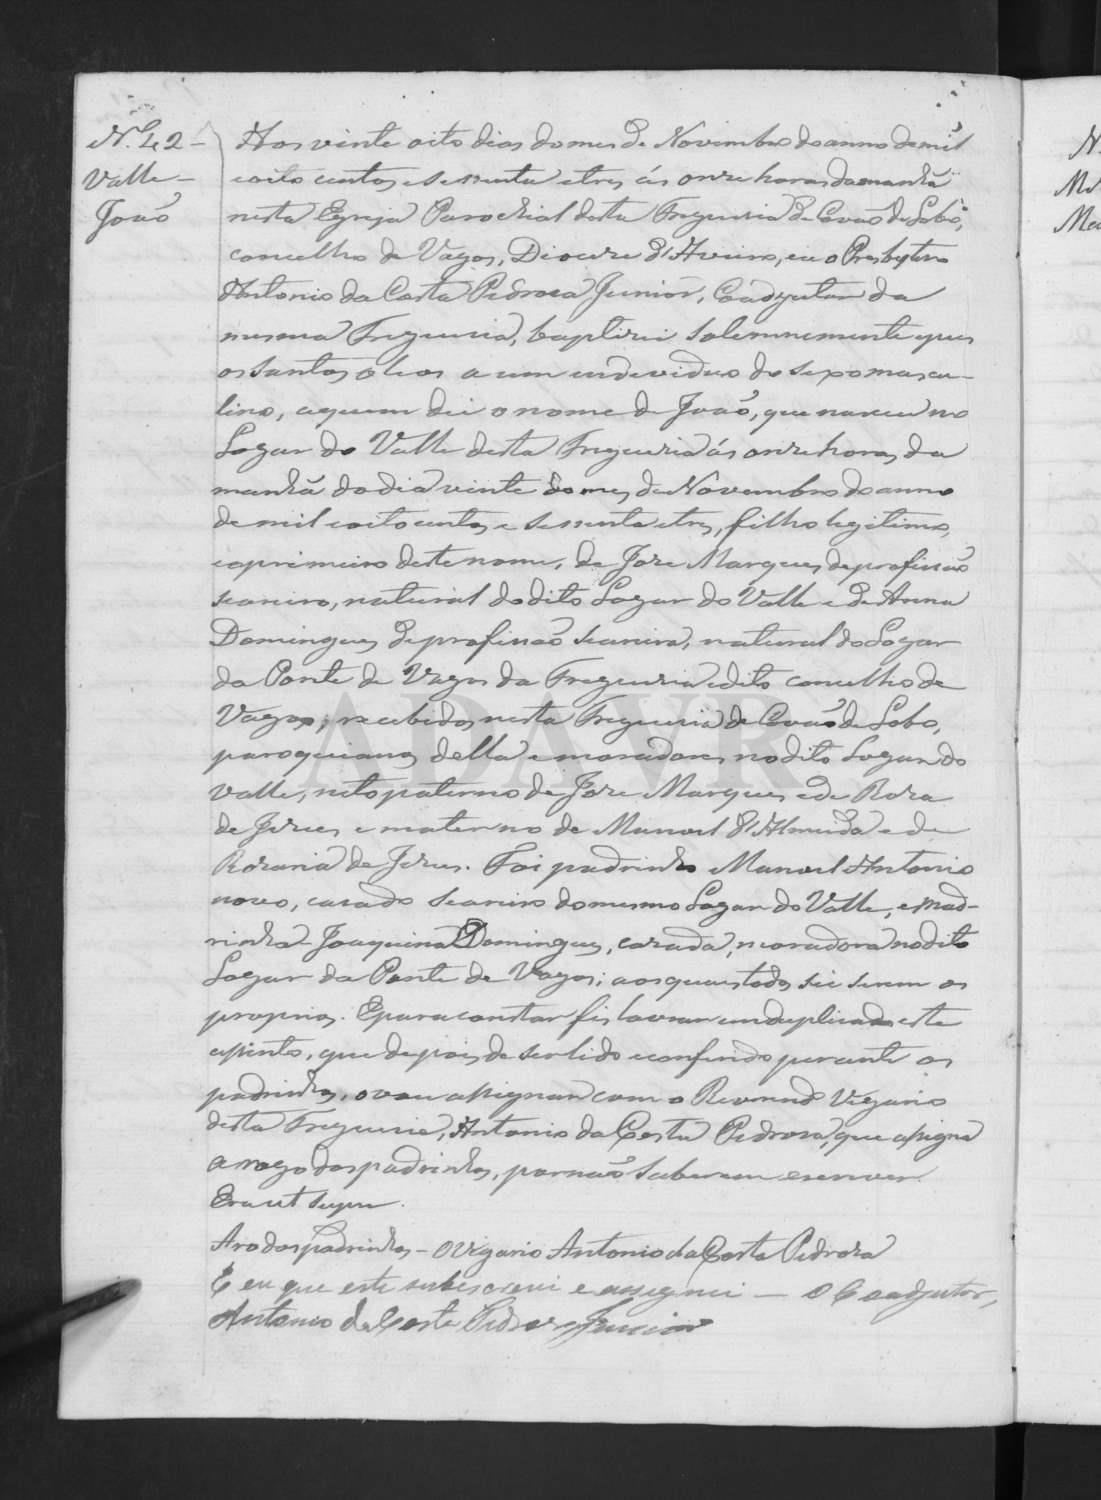 N.º 42 –
Valle –
João
Aos vinte oito dias do mes de Novembro do anno de mil
e oito centos e sessenta e tres ás onze horas da manhã
nesta Egreja Parochial desta Freguesia de Covaõ de Lobo,
concelho de Vagos, Diocese d'Aveiro, eu o Presbytero
Antonio da Costa Pedrosa Junior, Coadjutor da
mesma Freguesia, baptizei solemnemente e puz
os santos oleos a um individuo do sexo mascu-
lino, a quem dei o nome de Joaõ, que nasceu no
Logar do Valle desta Freguesia ás onze horas da
manhã do dia vinte do mes de Novembro do anno
de mil e oito centos e sessenta e tres, filho legitimo,
e o primeiro deste nome, de Joze Marques de profissaõ
seareiro, natural do dito Logar do Valle e de Anna
Domingues de profissaõ seareira, natural do Logar
da Ponte de Vagos da Freguesia e dito concelho de
Vagos; recebidos nesta Freguesia de Covaõ de Lobo,
paroquianos della e moradores no dito Logar do
Valle, neto paterno de Joze Marques e de Roza
de Jezus e materno de Manoel d'Almeida e de
Rozaria de Jezus. Foi padrinho Manoel Antonio
novo, casado seareiro do mesmo Logar do Valle, e Mad-
rinha Joaquina Domingues, cazada, moradora no dito
Logar da Ponte de Vagos; aos quaes todos sei serem os
proprios. E para constar fis lavrar em duplicado este
assento, que depois de ser lido e conferido perante os
padrinhos, o vou assignar com o Reverendo Vigario
desta Freguesia, Antonio da Costa Pedrosa, que assigna
a rogo dos padrinhos, por naõ saberem escrever.
Era ut supra.
A ro dos padrinhos – O Vigario Antonio da Costa Pedroza
E eu que este subescrevi e assignei – O Coadjutor,
Antonio da Costa Pedroza Junior
N.
M
Ma
ADAVR